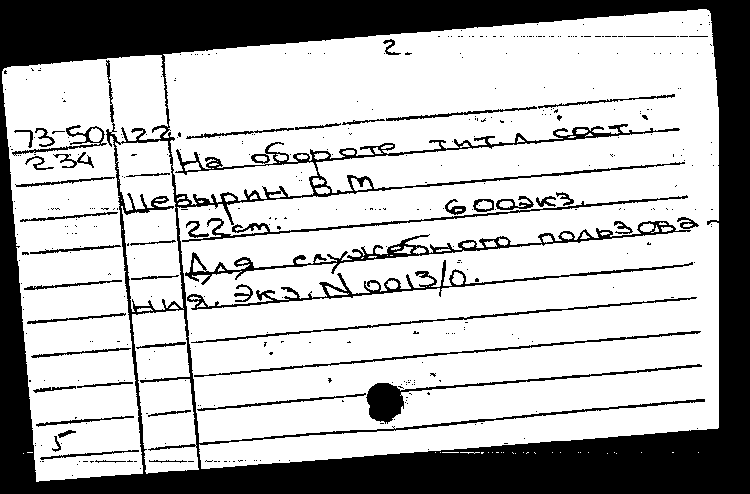 2.
73-50к122.
234 На обороте тит. л. сост.:
Шевырин В.М.
22 cm. 600экз.
Для служебного пользова-
ния. Экз. N 0013/0.
5